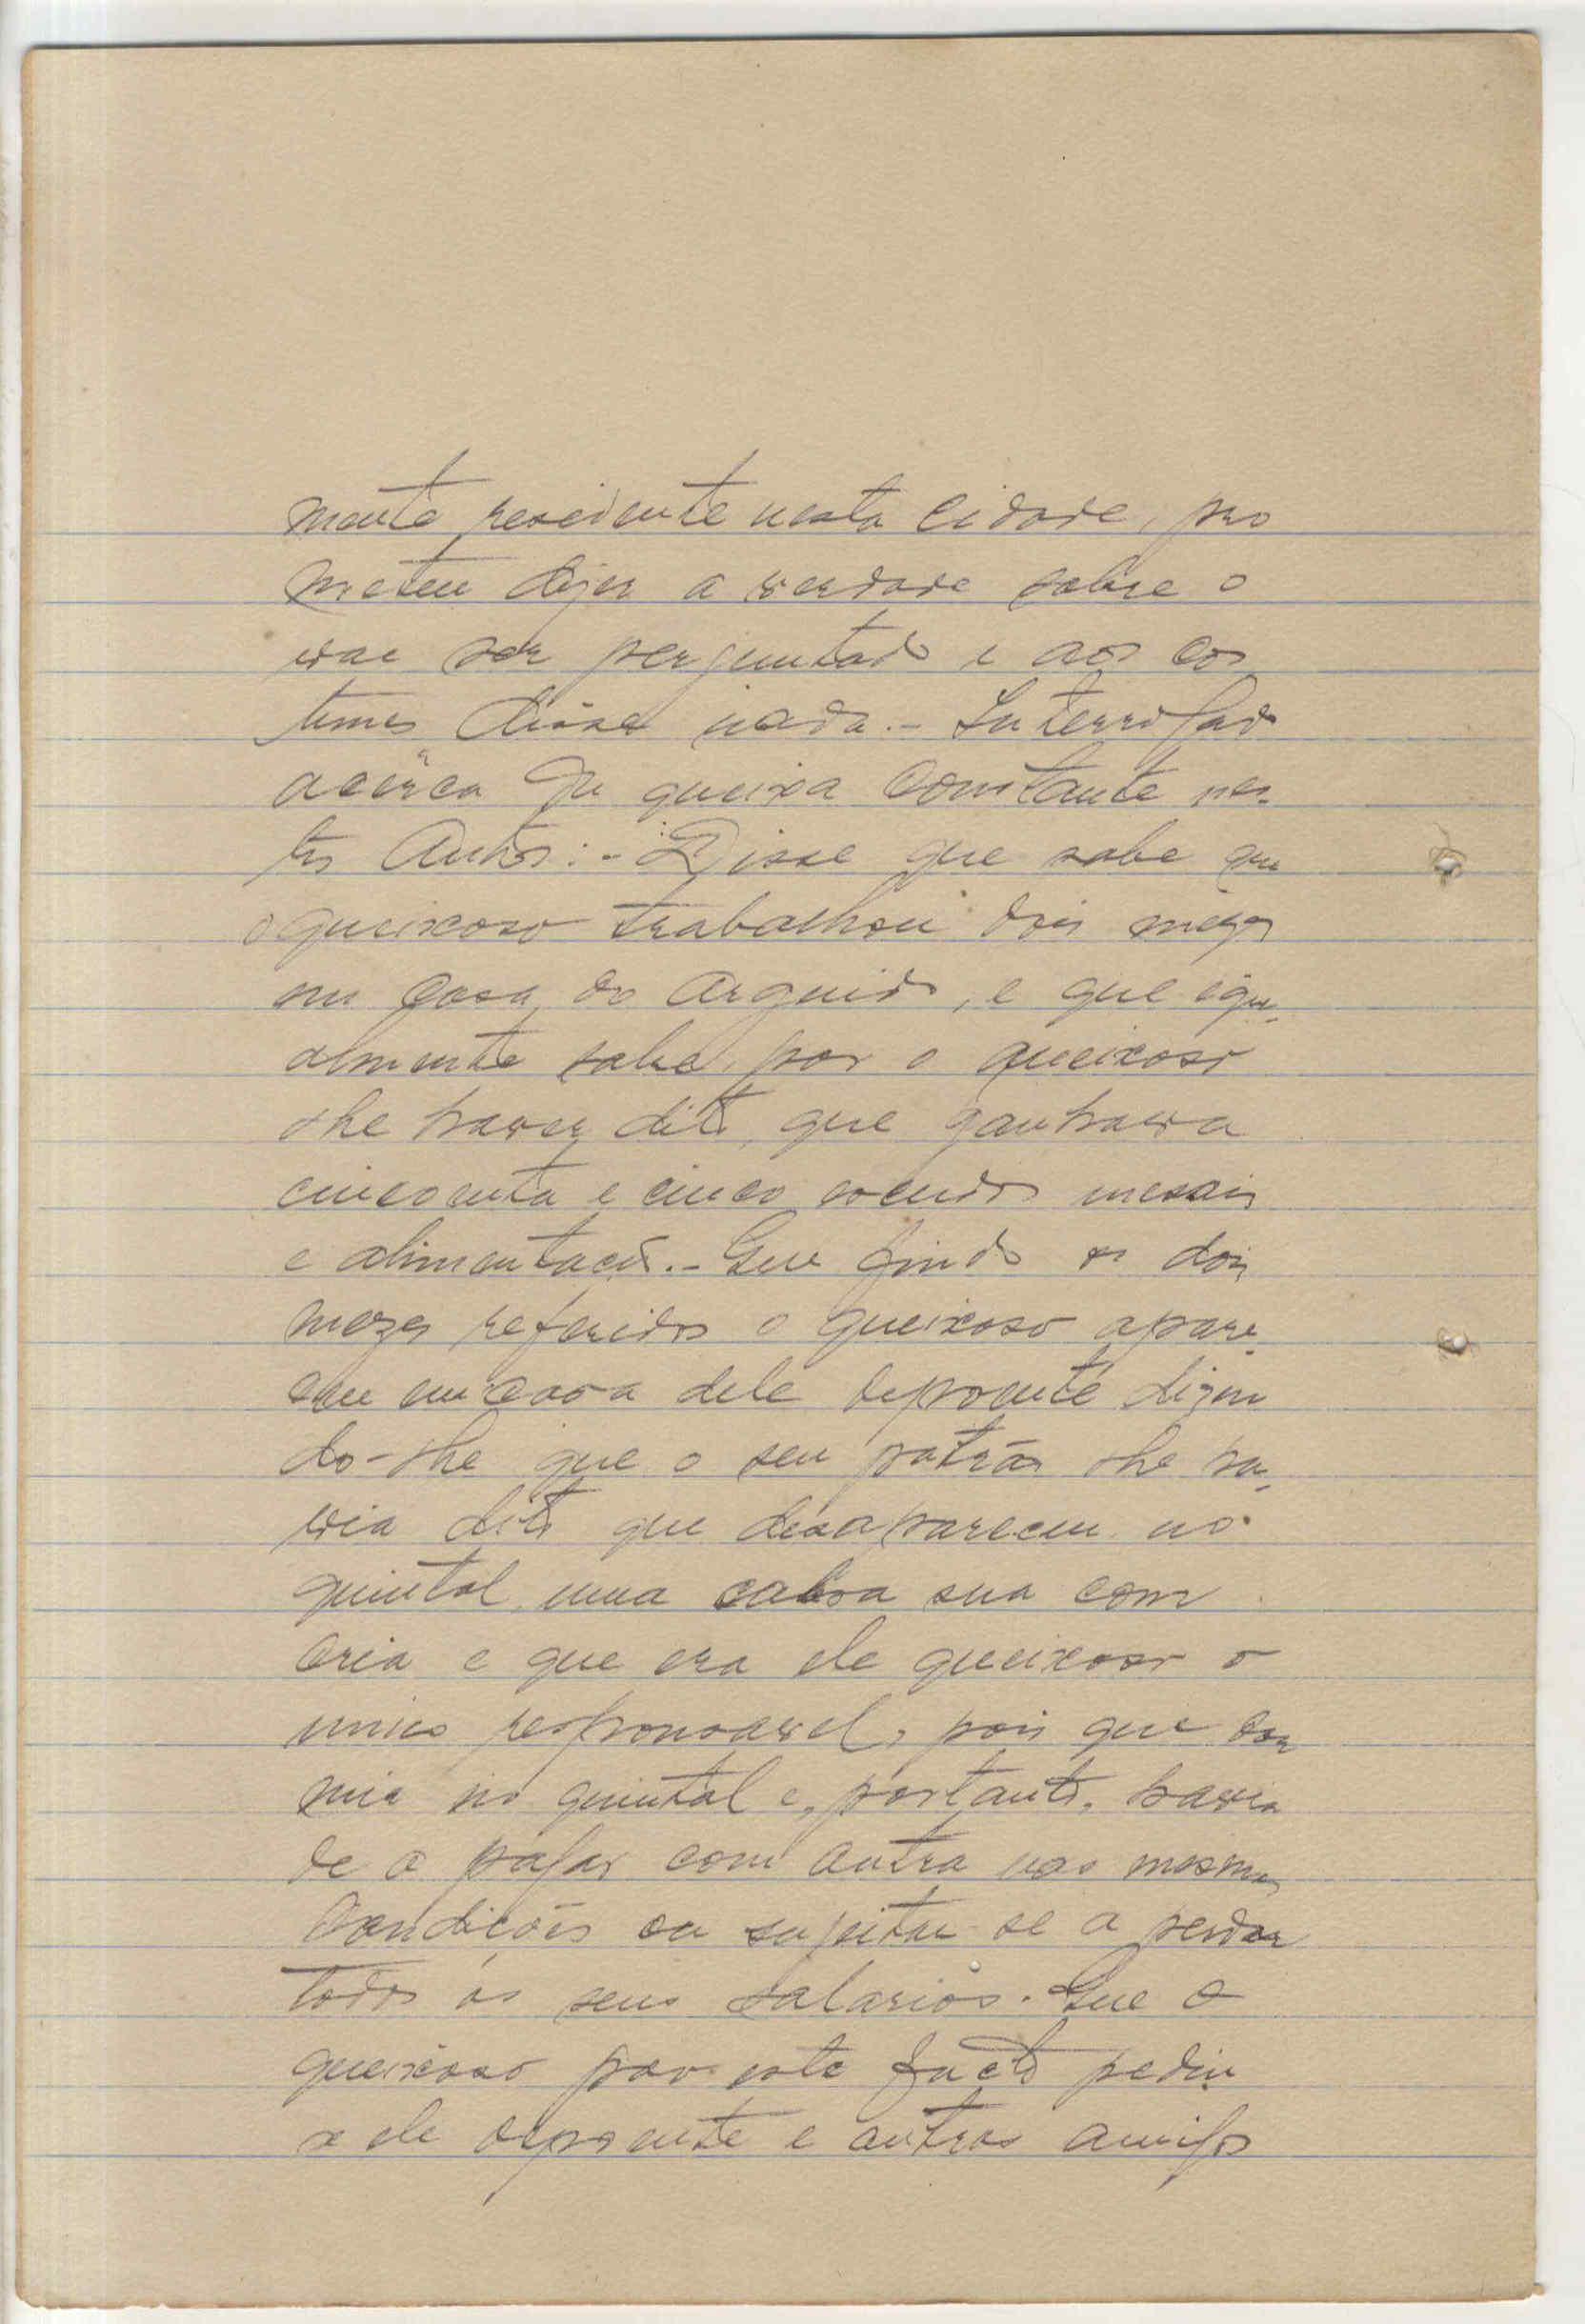 mente residente nesta cidade, pro
meteu dizer a verdade sobre o
vae ser perguntado e aos cos
tumes disse nada.- Interrogado
acêrca da queixa constante nes-
tes Autos:- Disse que sabe que
o queixoso trabalhou dois mezes
em casa do arguido, e que igu-
almente sabe, por o queixoso
lhe haver dito, que ganhava
cincoenta e cinco escudos mensais
e alimentação.- Que findo os dois
mezes referidos o queixoso apare-
ceu em casa dele depoente dizen
do-lhe que o seu patrão lhe ha-
via dito que desapareceu no
quintal uma cabra sua com
cria e que era ele queixoso o
unico responsavel, pois que dor
mia no quintal e, portanto, havia
de a pagar com outra nas mesmas
condições ou sujeitar-se a perder
todos os seus salarios. Que o
queixoso por este facto pediu
a ele depoente e outros amigos